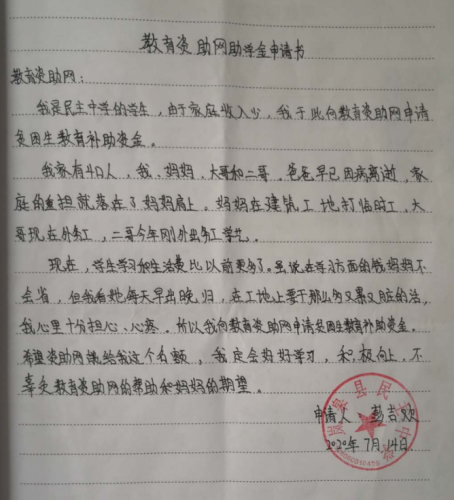 教育资助网助学金申请书
教育资助网：
我是民主中学的学生，由于家庭收入少，我于此向教育资助网申请
贫困生教育补助资金。
我家有4口人，我、妈妈、大哥和二哥。爸爸早已因病离逝，家
庭的重担就落在了妈妈肩上。妈妈在建筑工地打临时工，大
哥现在外务工，二哥今年刚外出务工学艺。
现在，学生学习和生活费比以前更多了。虽说在学习方面的钱妈妈不
会省，但我看她每天早出晚归，在工地上要干那么多又累又脏的活，
我心里十分担心、心疼。所以我向教育资助网申请贫困生教育补助资金。
希望资助网能给我这个名额，我定会好好学习，积极向上，不
辜负教育资助网的帮助和妈妈的期望。
申请人 彭吉欢
2020年7月14日
县民